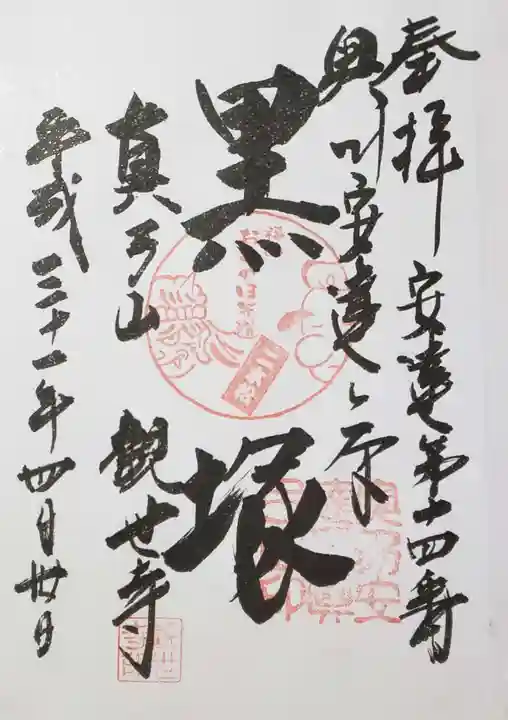 奉拝 安達第十四番
奥州安達ヶ原
黒塚
真弓山 観世寺
平成三十一年四月卅日